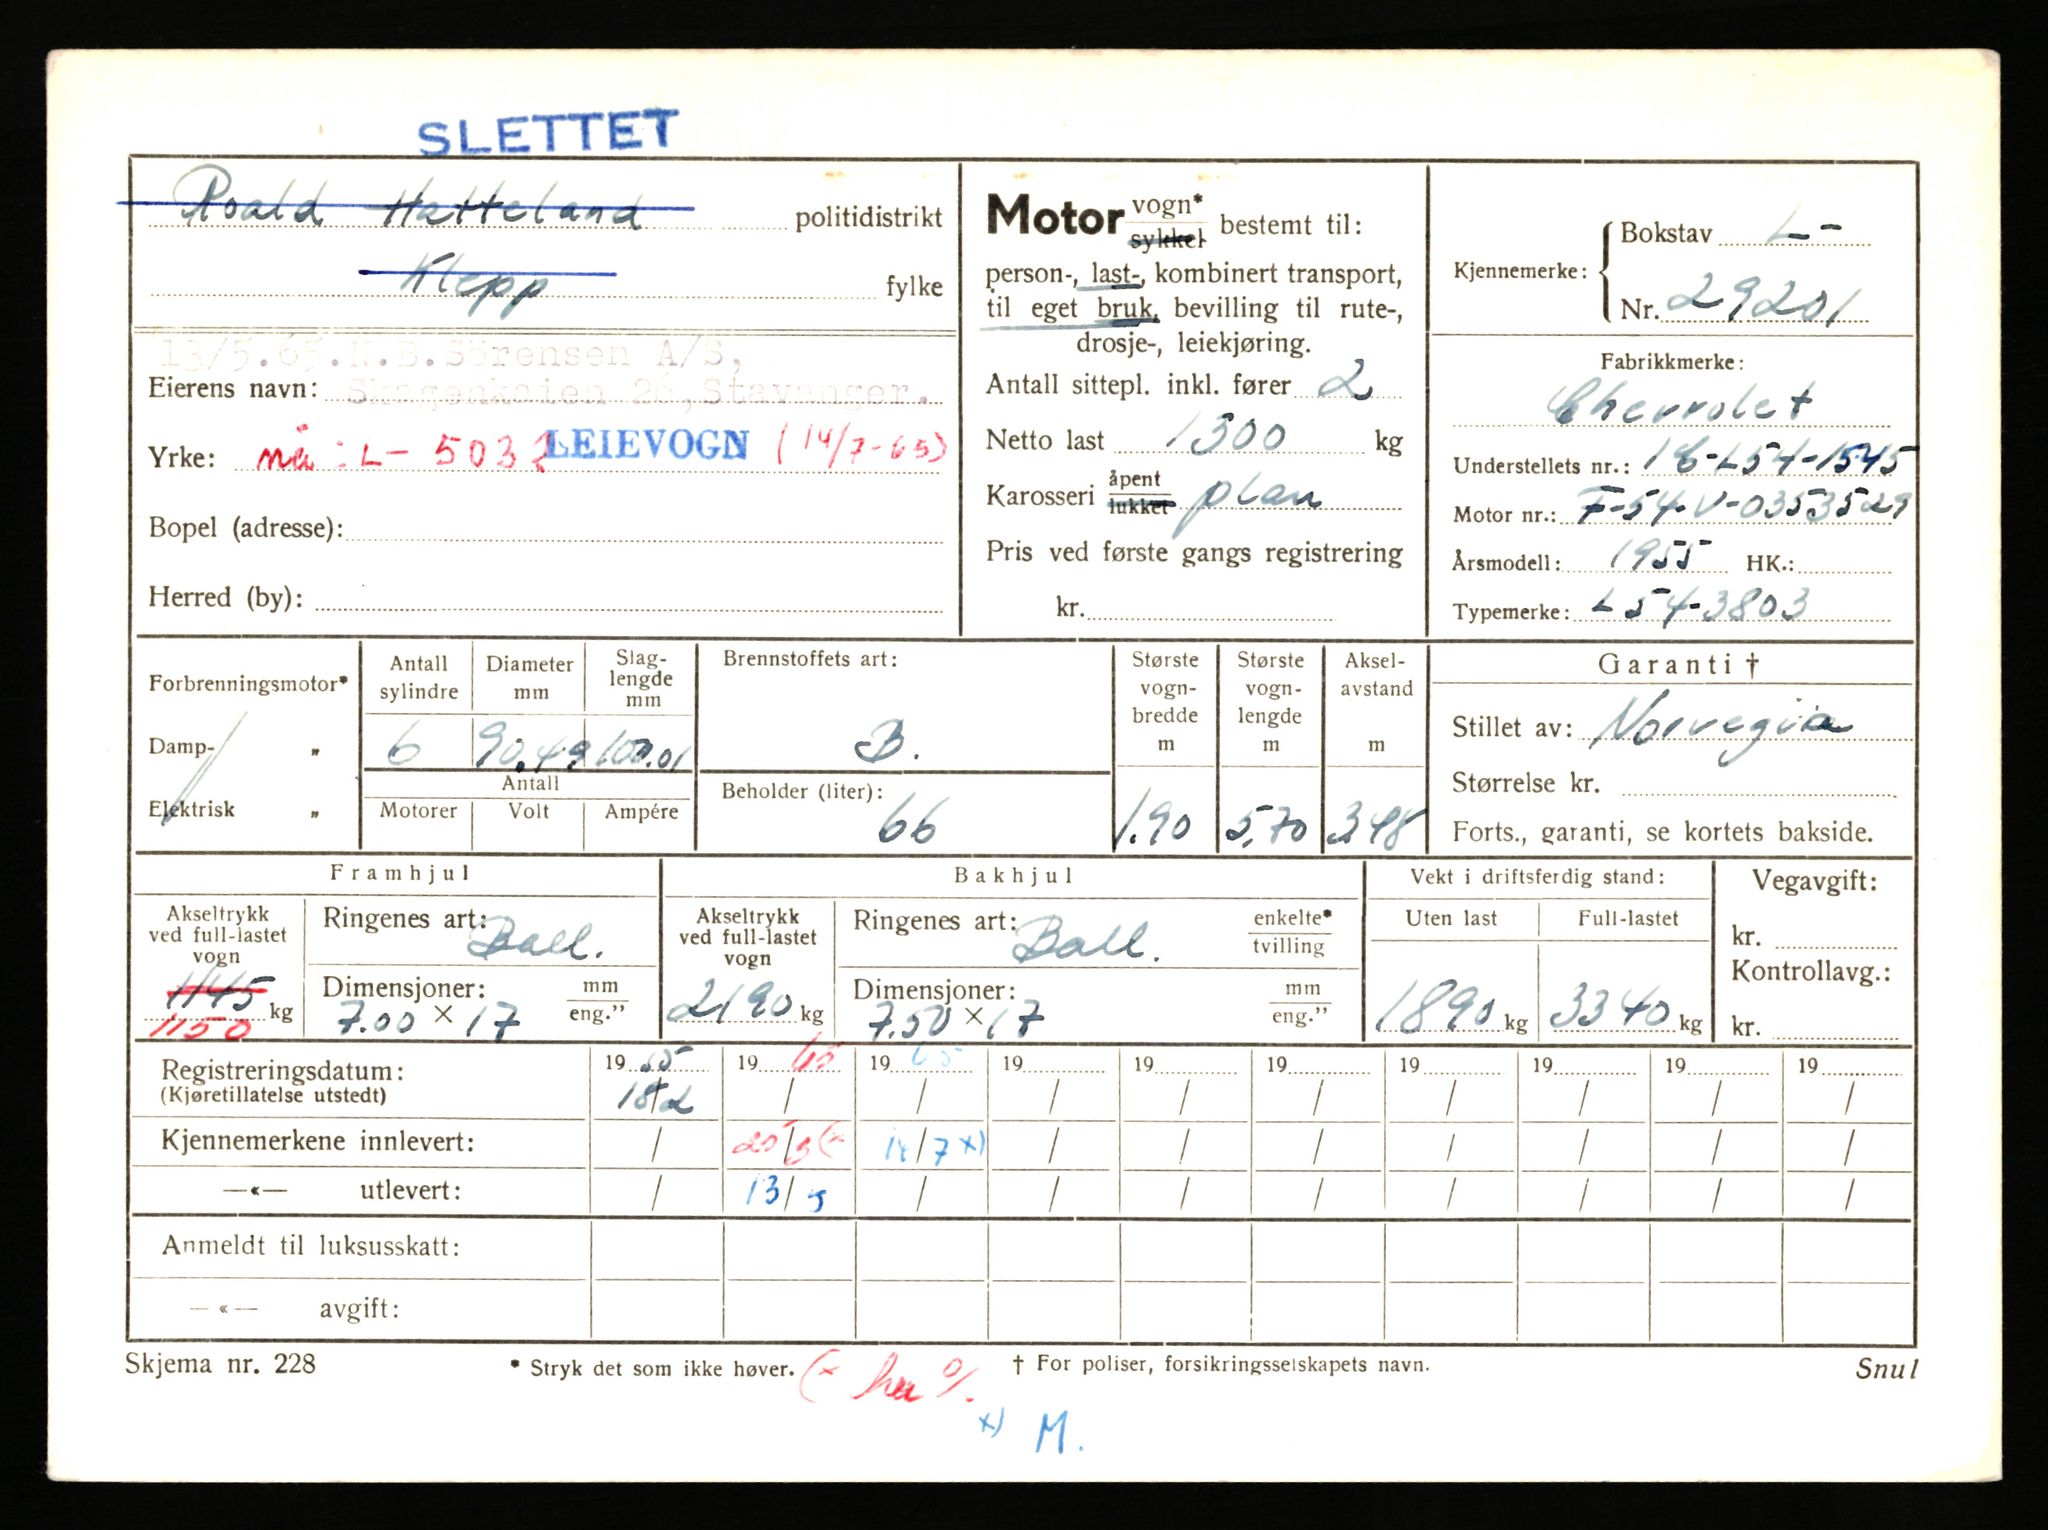 SLETTET
Roald Hatteland politidistrikt
Klepp fylke
13/5.65. N.B.Sörensen A/S,
Eierens navn: Skagenkaien 26, Stavanger.
Yrke: nå: L- 5032 LEIEVOGN (14/7-65)
Bopel (adresse):
Herred (by):
Motor vogn* sykkel bestemt til:
person-, last-, kombinert transport,
til eget bruk, bevilling til rute-,
drosje-, leiekjøring.
Antall sittepl. inkl. fører 2
Netto last 1300 kg
Karosseri åpent lukket plan
Pris ved første gangs registrering
kr.
Kjennemerke: Bokstav L-
Nr. 29201
Fabrikkmerke:
Chevrolet
Understellets nr.: 16-L54-1545
Motor nr.: F-54-V-0353529
Årsmodell: 1955 HK.:
Typemerke: L54-3803
Forbrenningsmotor*
Damp- „
Elektrisk „
Antall sylindre Diameter mm Slag-lengde mm
6 90.49 100.01
Antall
Motorer Volt Ampére
Brennstoffets art:
B.
Beholder (liter):
66
Største vogn-bredde m
1.90
Største vogn-lengde m
5,70
Aksel-avstand m
3.48
Garanti †
Stillet av: Norvegia
Størrelse kr.
Forts., garanti, se kortets bakside.
Framhjul
Akseltrykk ved full-lastet vogn
1145 kg
1150
Ringenes art: Ball.
Dimensjoner: mm eng."
7.00 × 17
Bakhjul
Akseltrykk ved full-lastet vogn
2190 kg
Ringenes art: Ball. enkelte* tvilling
Dimensjoner: mm eng."
7.50 × 17
Vekt i driftsferdig stand:
Uten last Full-lastet
1890 kg 3340 kg
Vegavgift:
kr.
Kontrollavg.:
kr.
Registreringsdatum: 19 55 19 65 19 65 19 19 19 19 19 19 19
(Kjøretillatelse utstedt) 18/2 / / / / / / / / /
Kjennemerkene innlevert: / 20/3 (x 14/7 x) / / / / / / /
—«— utlevert: / 13/5 / / / / / / / /
Anmeldt til luksusskatt:
—«— avgift:
Skjema nr. 228 * Stryk det som ikke høver. † For poliser, forsikringsselskapets navn. Snul
x) M.